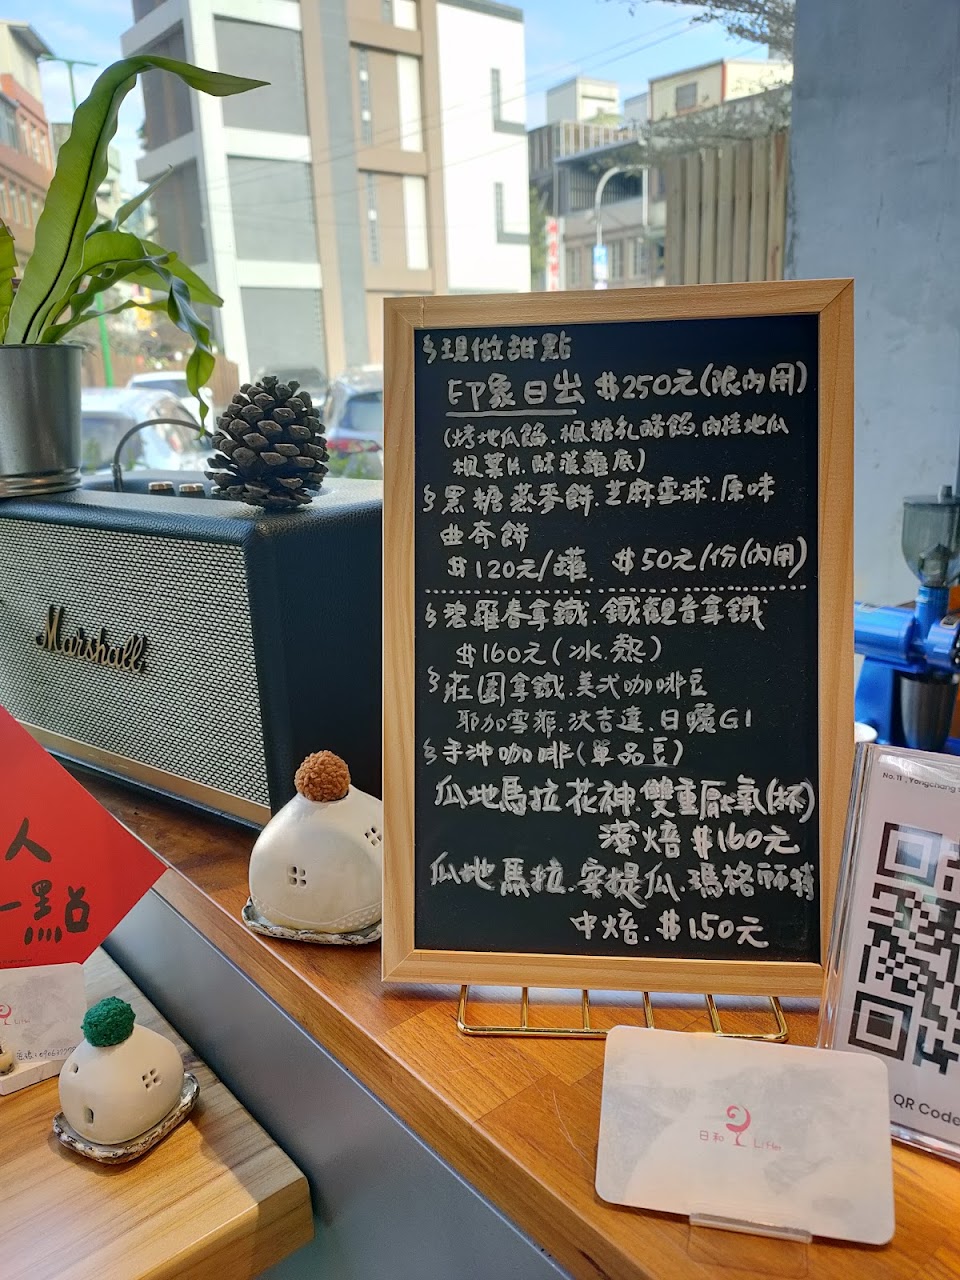 現做甜點
印象日出 $250元(限內用)
(烤地瓜餡.楓糖乳酪餡.肉桂地瓜
楓葉片.酥菠蘿底)
黑糖燕麥餅.芝麻雪球.原味
曲奇餅
$120元/罐. $50元/份(內用)
波羅春拿鐵.鐵觀音拿鐵
$160元(冰.熱)
莊園拿鐵.美式咖啡豆
耶加雪菲.沃吉達.日曬G1
手沖咖啡(單品豆)
瓜地馬拉花神.雙重厭氧(杯)
淺焙 $160元
瓜地馬拉.安提瓜.瑪格麗特
中焙.$150元
Marshall
人
一點
日和 Life
No. 11, Yongchang
QR Code